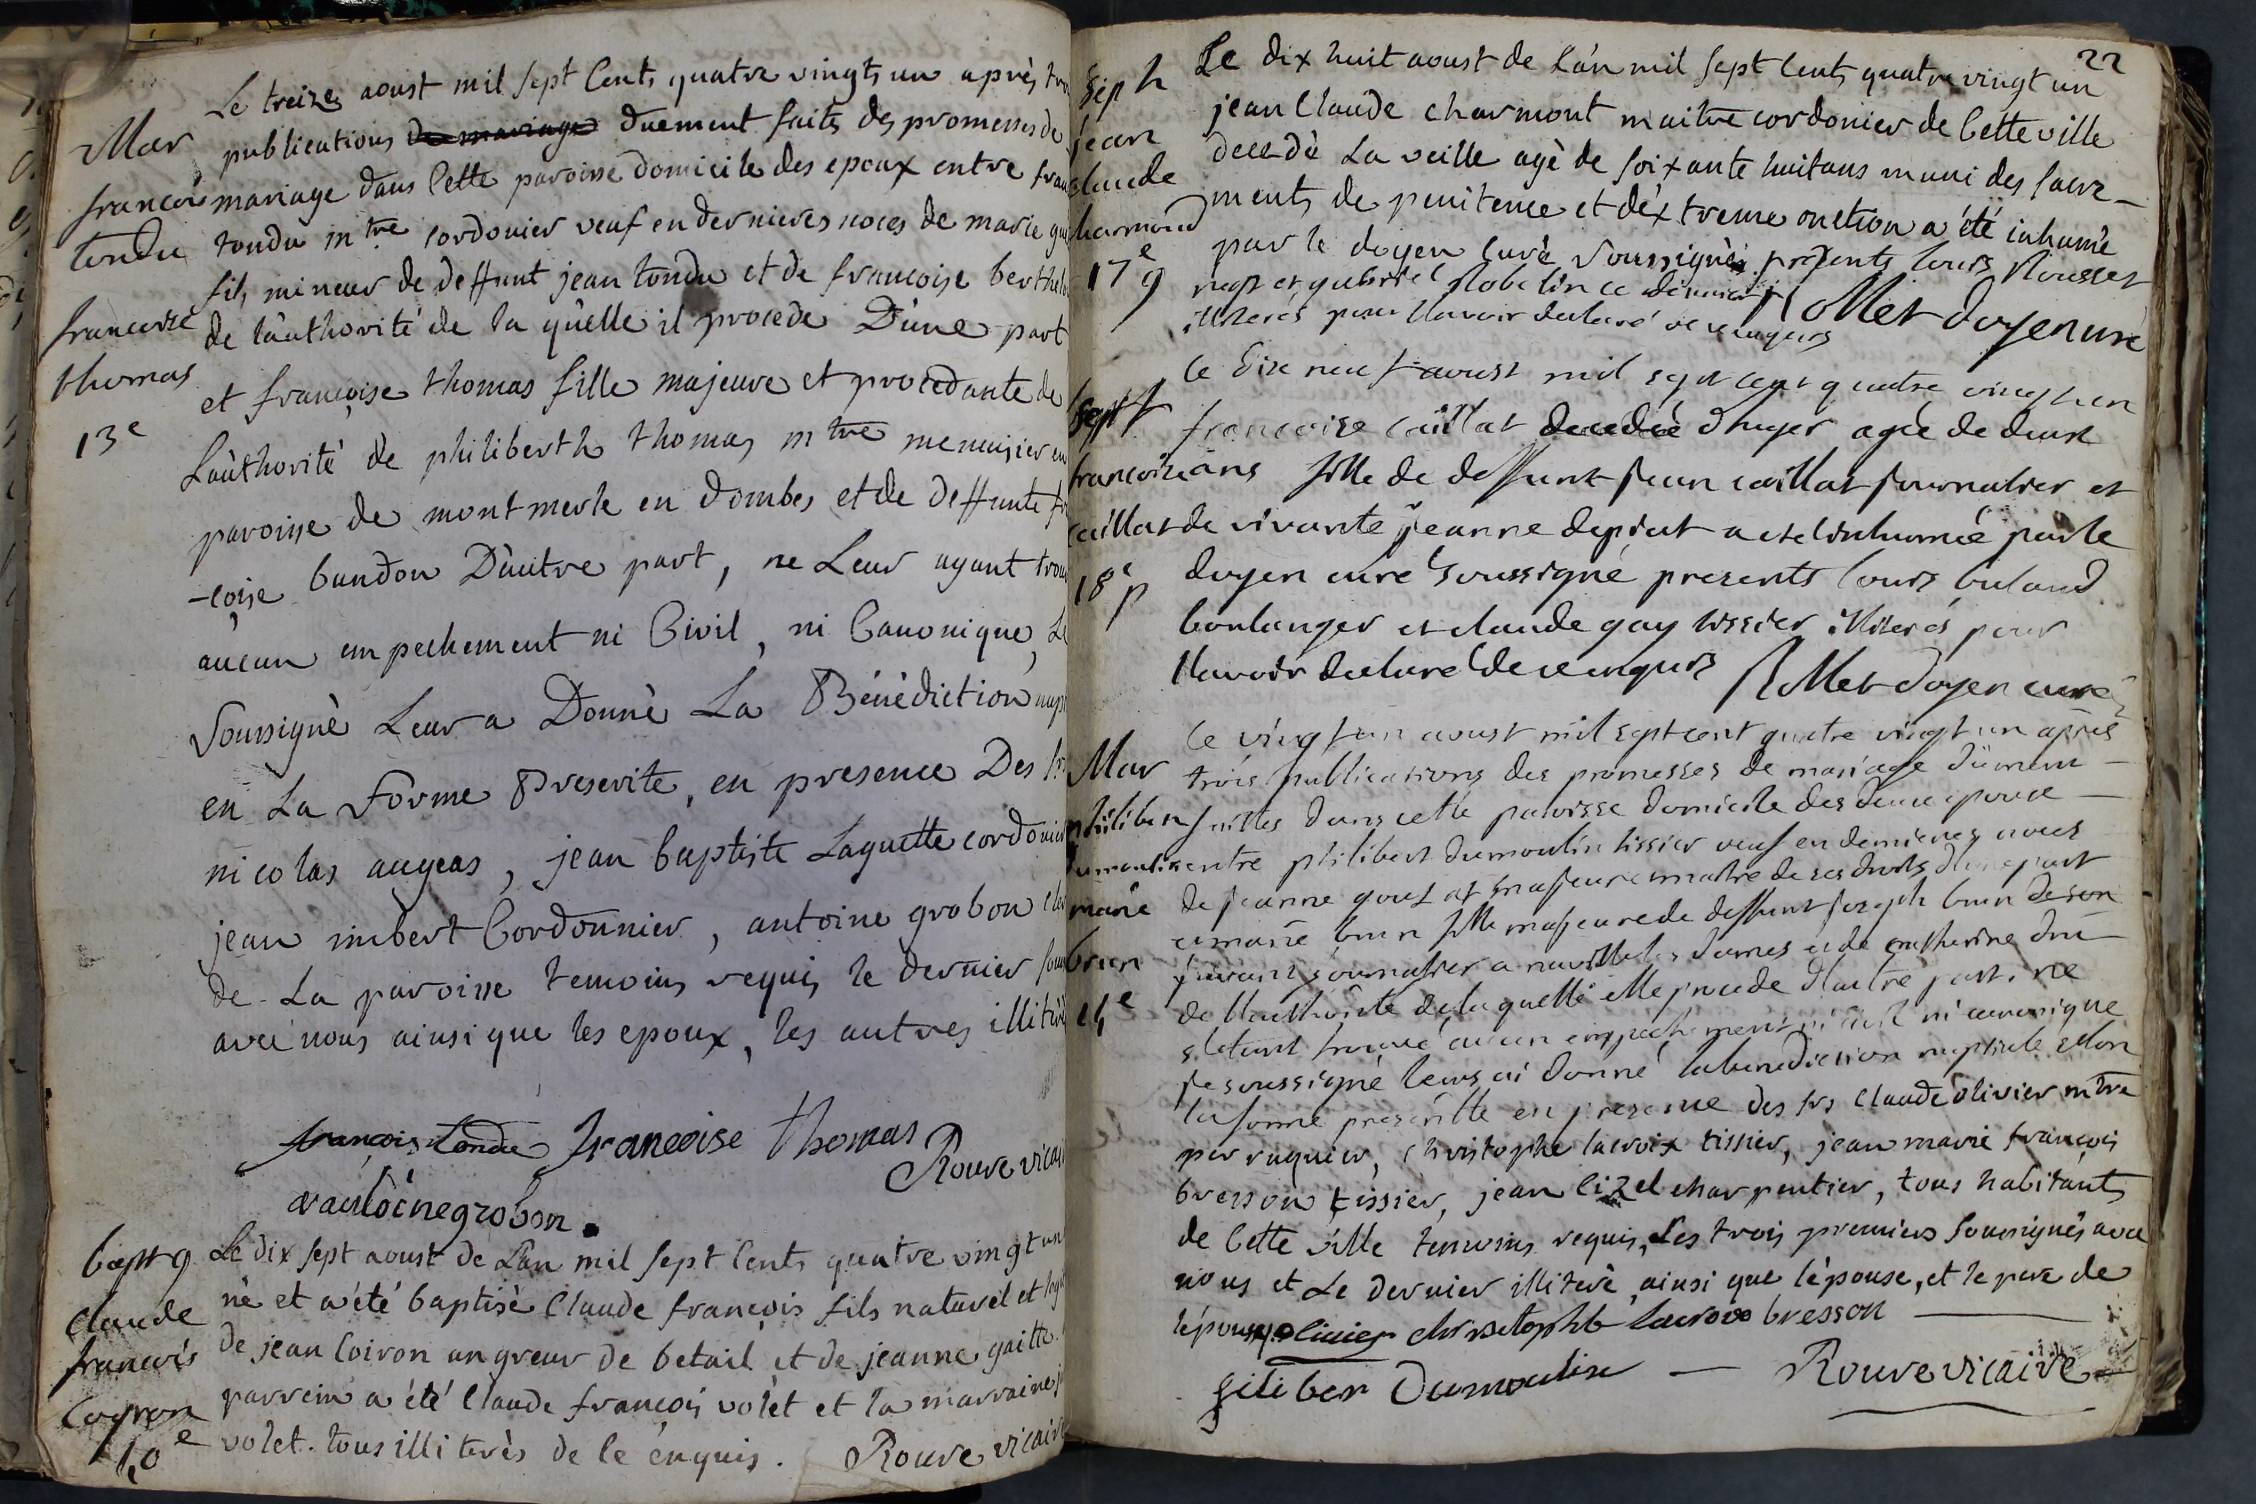 Mar
françois
tondu
francoise
thomas
13e
Le treize aoust mil sept Cents quatre vingts un après
publications de mariage duement faits des promesses de
mariage dans Cette paroisse domicile des epoux entre
tondu mtre cordonier veuf en dernieres noces de marie
fils mineur de deffunt jean tondu et de francoise
de l'authorité de la quelle il procede D'une part
et françoise thomas fille majeure et procedante de
L'authorité de philiberth thomas mtre menuisier
paroisse de montmerle en dombes et de deffunte
-çoise bandon D'autre part, ne Leur ayant
aucun empechement ni Civil, ni Canonique,
Soussigné Leur a Donné La Bénédiction
en La forme Prescrite, en presence Des
nicolas augeas, jean baptiste Laguette
jean imbert Cordonnier, antoine grobon
de La paroisse temoins requis le dernier
avec nous ainsi que les epoux, les autres
françois tondu françoise thomas
Rouve
grobon
bapt g
claude
francois
Coyron
10e
Le dix sept aoust de L'an mil sept Cents quatre vingt un
né et a été baptisé Claude françois fils naturel et
de jean Coiron angreur de betail et de jeanne gaitte
parrein a été Claude françois volet et la marraine
volet. tous illiterés de ce enquis. Rouve vicaire
22
Sep h
jean
claude
17e g
Le dix huit aoust de L'an mil sept Cents quatre vingt un
jean Claude charmont maitre cordonier de Cette ville
decedé La veille agé de soixante huit ans muni des sacre-
ments de penitence et d'extreme onction a été inhumé
par le doyen Curé Soussigné presents Louis Rousset
et gabriel Robelin ce dernier
illiterés pour l'avoir declaré de ce enquis Rollet doyen curé
Sept f
francoise
caillat
18e p
le dix neuf aoust mil sept cent quatre vingt un
francoise caillat decedée d'hyer agée de deux
ans fille de deffunt jean caillat journalier et
de vivante jeanne depriat a eté inhumée par le
doyen curé soussigné presents louis
boulanger et claude gay tissier illiterés pour
l'avoir declaré de ce enquis Rollet doyen curé
Mar
philibert
dumoulin
marie
brun
14e
le vingt un aoust mil sept cent quatre vingt un après
trois publications des promesses de mariage düment
faittes dans cette paroisse domicile des deux epoux
entre philibert dumoulin tissier veuf en dernieres noces
de jeanne majeur maitre de ses droits d'une part
et marie brun fille majeure de deffunt joseph brun de son
vivant journalier a neuville les dames et de catherine
de l'authorité de laquelle elle procede d'autre part. ne
s'etant trouvé aucun empechement ni civil ni canonique
je soussigné leurs ai donné la benediction nuptiale selon
la forme prescritte en presence des srs Claude olivier mtre
perruquier, Christophe lacroix tissier, jean marie françois
bresson tissier, jean lizel charpentier, tous habitants
de Cette ville temoins requis, Les trois premiers soussignés avec
nous et Le dernier illiteré, ainsi que l'épouse, et le pere de
l'épouse. olivier christophle lacroix bresson
filiber Dumoulin Rouve vicaire